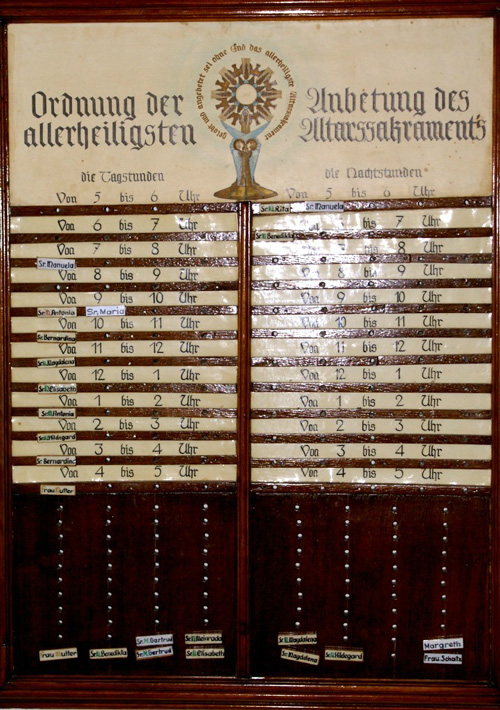 Ordnung der
allerheiligsten
gelobt und angebetet sei ohne End das allerheiligste Altarssakrament
Anbetung des
Altarssakraments
die Tagstunden
Von 5 bis 6 Uhr
Von 6 bis 7 Uhr
Von 7 bis 8 Uhr
Sr. Manuela
Von 8 bis 9 Uhr
Von 9 bis 10 Uhr
Sr. M. Antonia Sr. Maria
Von 10 bis 11 Uhr
Sr. Bernardina
Von 11 bis 12 Uhr
Sr. M. Magdalena
Von 12 bis 1 Uhr
Sr. M. Elisabeth
Von 1 bis 2 Uhr
Sr. M. Antonia
Von 2 bis 3 Uhr
Sr. M. Hildegard
Von 3 bis 4 Uhr
Sr. Bernardina
Von 4 bis 5 Uhr
Frau Mutter
die Nachtstunden
Von 5 bis 6 Uhr
Sr. M. Rita Sr. Manuela
6 7 Uhr
Sr. M. Benedikta
8 Uhr
Von 8 bis 9 Uhr
Von 9 bis 10 Uhr
Von 10 bis 11 Uhr
Von 11 bis 12 Uhr
Von 12 bis 1 Uhr
Von 1 bis 2 Uhr
Von 2 bis 3 Uhr
Von 3 bis 4 Uhr
Von 4 bis 5 Uhr
Sr. M. Gertrud
Sr. M. Meinrada
Frau Mutter
Sr. M. Benedikta
Sr. M. Gertrud
Sr. M. Elisabeth
Sr. M. Magdalena
Sr. M. Magdalena
Sr. M. Hildegard
Margreth
Frau Schaitz